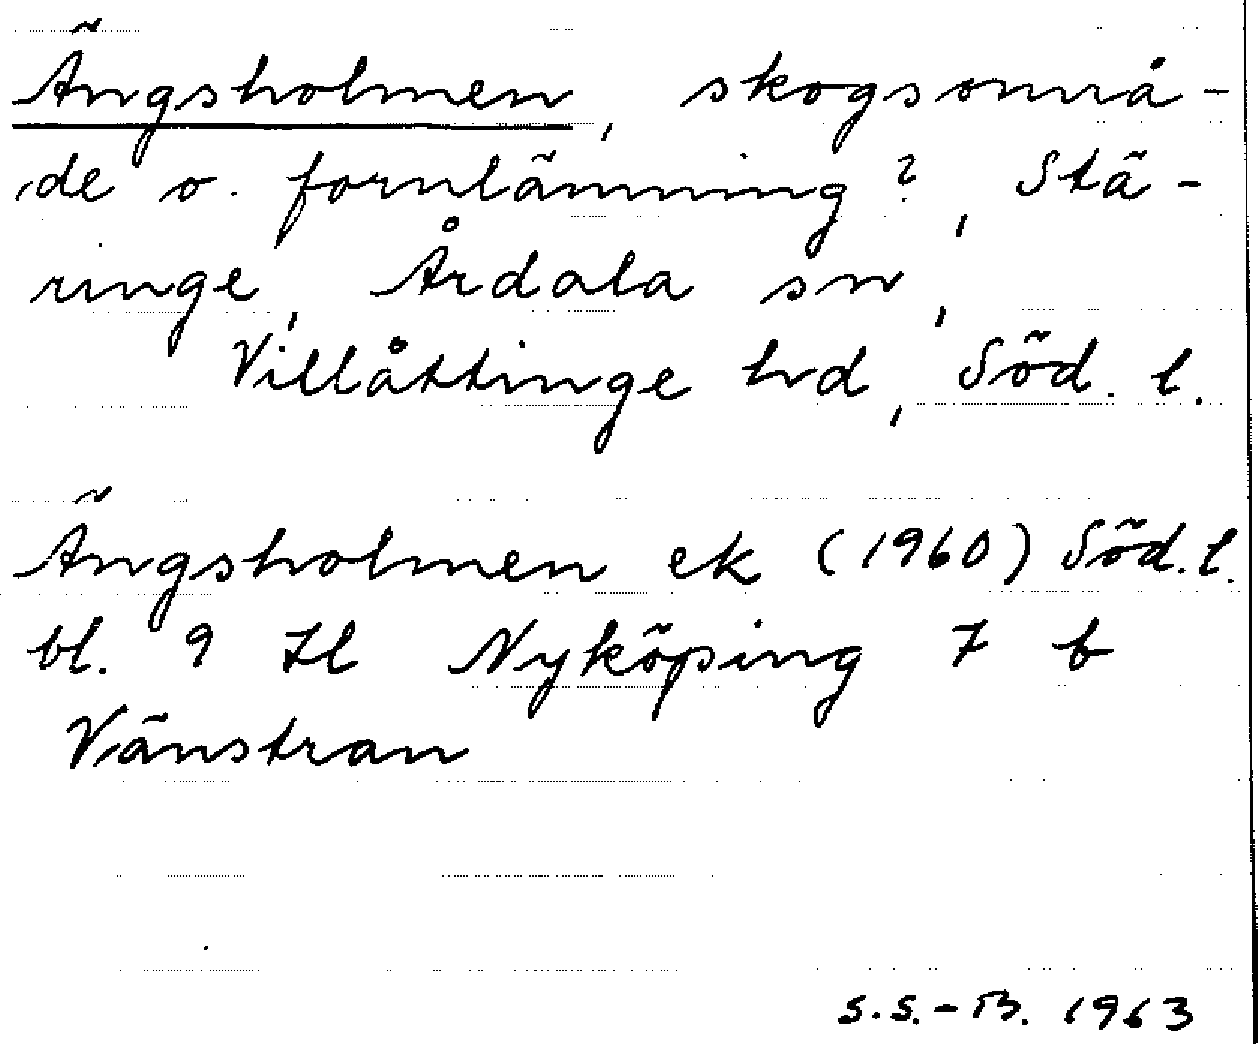 Ängsholmen, skogsområ-
de o. fornlämning?, Stä-
ringe, Årdala sn,
Villåttinge hd, Söd. l.
Ängsholmen ek (1960) Söd. l.
bl. 9 H Nyköping 7 b
Vänstran
S.S.-B. 1963